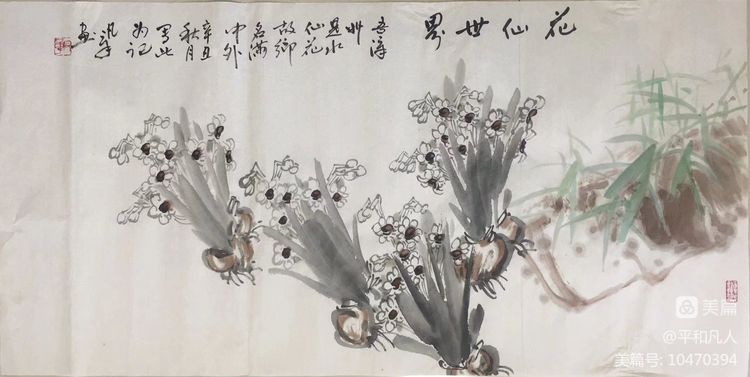 花仙世界
吾漳
州
是水
仙花
故鄉
名满
中外
辛丑
秋月
写此
为记
画
美篇
@平和凡人
美篇号: 10470394